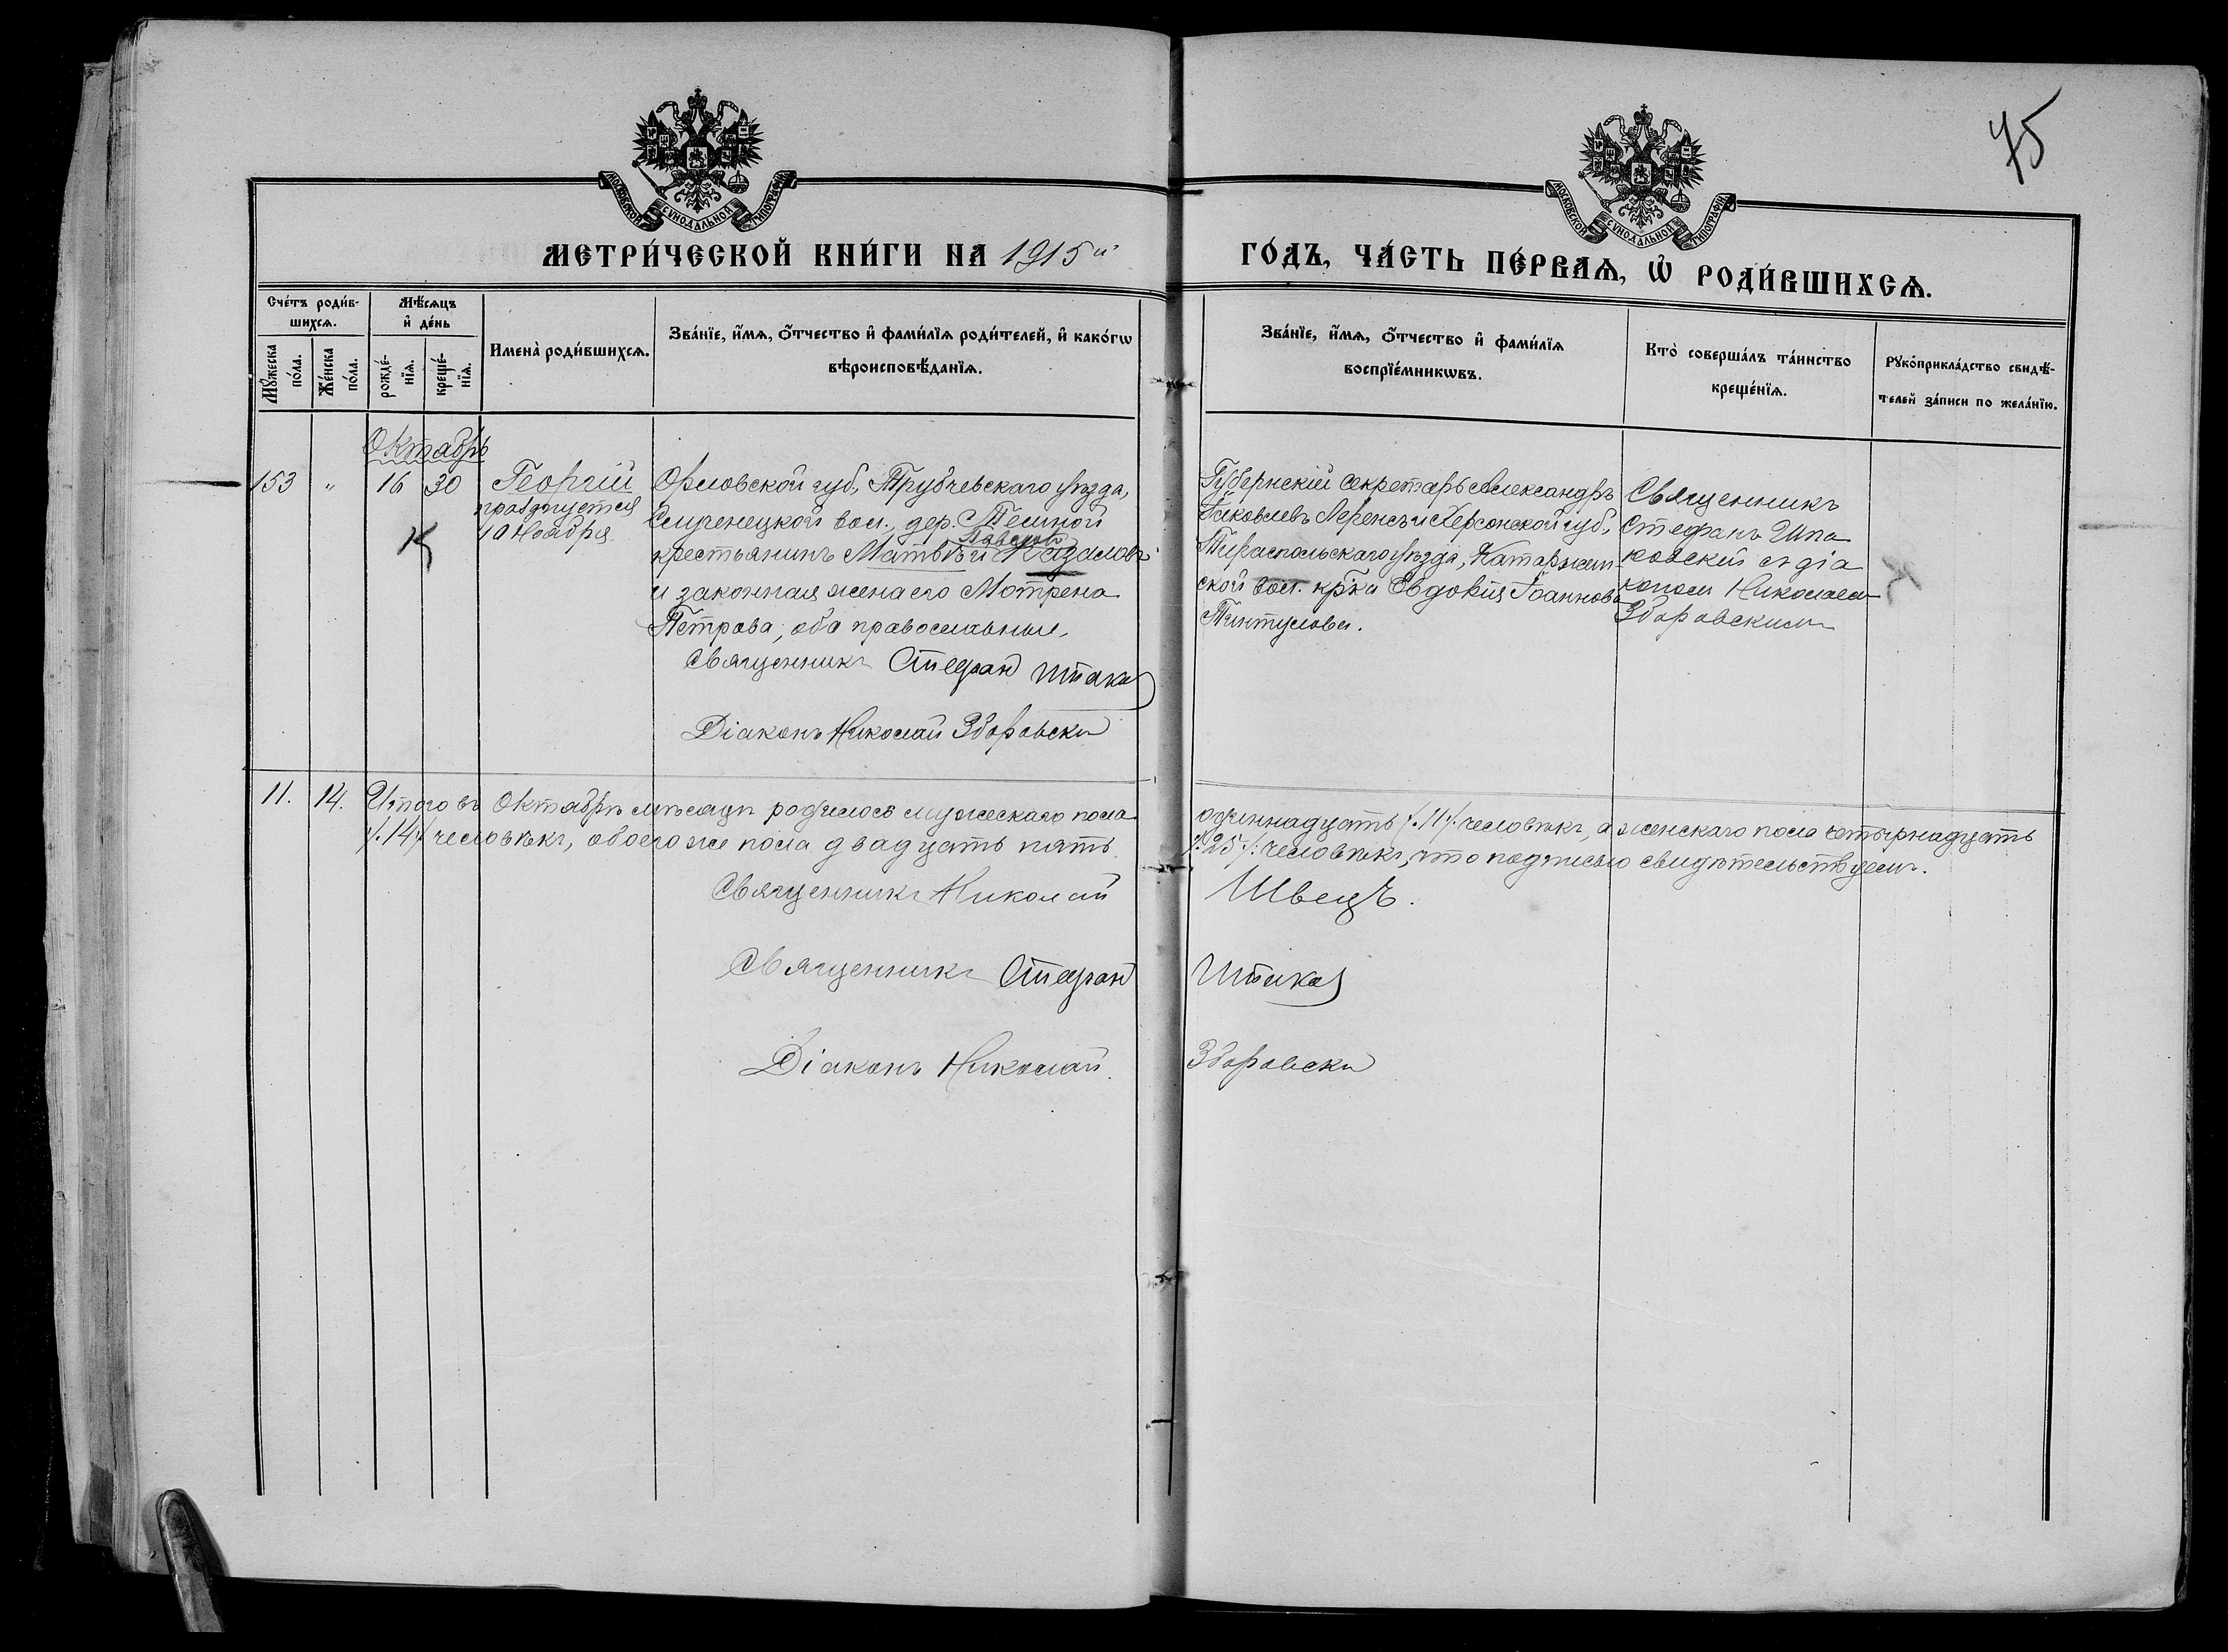 75
МОСКОВСКОЙ СѴНОДАЛЬНОЙ ТИПОГРАФІИ
МОСКОВСКОЙ СѴНОДАЛЬНОЙ ТИПОГРАФІИ
МЕТРИ́ЧЕСКОЙ КНИ́ГИ НА 1915й
ГО́ДЪ, ЧА́СТЬ ПЕ́РВАѦ, Ѡ҆ РОДИ́ВШИХСѦ.
Сче́тъ роди́в-
шихсѧ.
Мꙋ́жеска
по́ла.
Же́нска
по́ла.
Мѣ́сѧцъ
и҆ де́нь
рожде́-
нїѧ.
креще́-
нїѧ.
Имена̀ роди́вшихсѧ.
Зва́нїе, и҆́мѧ, ѻ҆́тчество и҆ фами́лїѧ роди́телей, и҆ како́гѡ
вѣроисповѣ́данїѧ.
Зва́нїе, и҆́мѧ, ѻ҆́тчество и҆ фами́лїѧ
воспрїе́мникѡвъ.
Кто̀ соверша́лъ та́инство
креще́нїѧ.
Рꙋкоприкла́дство свидѣ́-
телей за́писи по жела́нїю.
Октябрь
153 " 16 30
Георгій
празднуется
10 Ноября
Орловской губ., Трубчевскаго уѣзда,
вол., дер. Темной
Павловъ
крестьянинъ Матвѣй
и законная жена его Мотрена
Петрова, оба православные.
Священникъ Стефан Шпак
Діаконъ Николай Здоровски
Губернскій секретарь Александръ
Яковлевъ и Херсонской губ.,
Тираспольскаго уѣзда, Катаржин-
ской вол. кр-ка Евдокія Іоаннова
Тинтулова.
Священникъ
Стефанъ Шпа
ковскій съ діа
кономъ Николаемъ
Здоровскимъ
11. 14. Итого въ Октябрѣ мѣсяцѣ родилось мужескаго пола одиннадцать /.11/. человѣкъ, а женскаго пола четырнадцать
/.14/. человѣкъ, обоего же пола двадцать пять /.25./. человѣкъ, что подписью свидѣтельствуемъ.
Священникъ Николай Швецъ.
Священникъ Стефан Шпак
Діаконъ Николай Здоровски